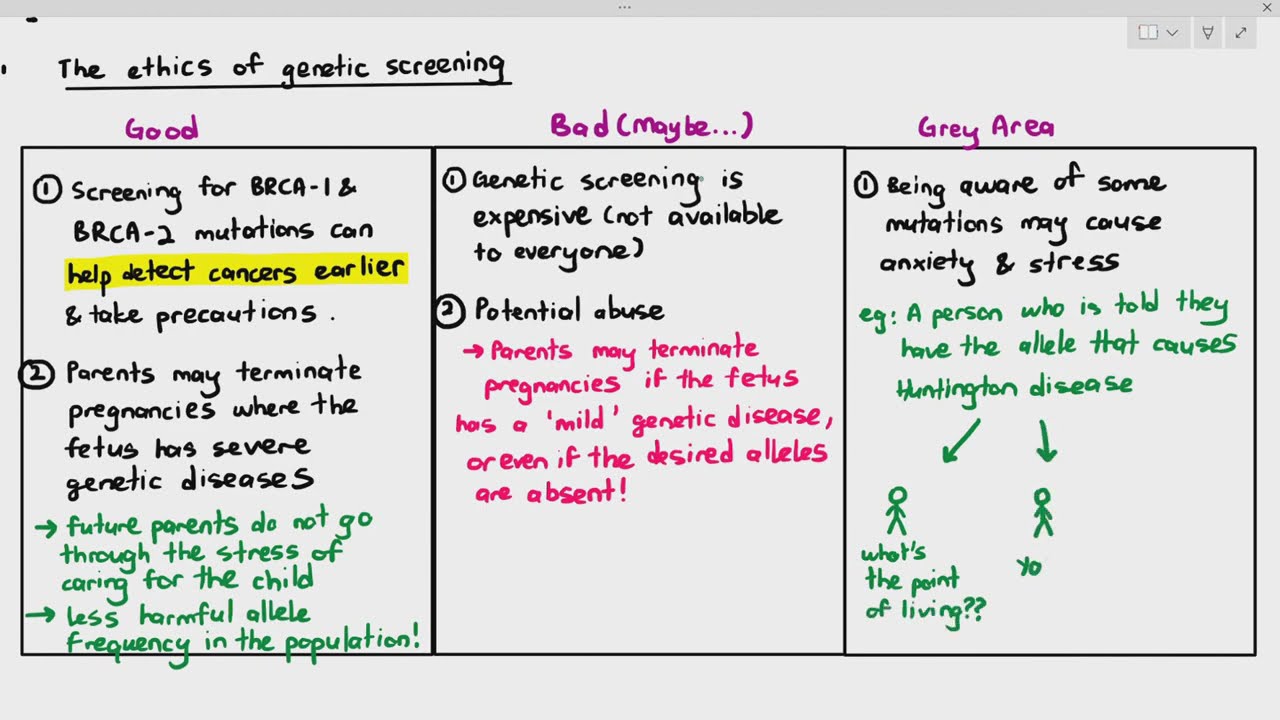 The ethics of genetic screening
Good
① Screening for BRCA-1 &
BRCA-2 mutations can
help detect cancers earlier
& take precautions.
② Parents may terminate
pregnancies where the
fetus has severe
genetic diseases
→ future parents do not go
through the stress of
caring for the child
→ less harmful allele
frequency in the population!
Bad (Maybe...)
① Genetic screening is
expensive (not available
to everyone)
② Potential abuse
→ Parents may terminate
pregnancies if the fetus
has a 'mild' genetic disease,
or even if the desired alleles
are absent!
Grey Area
① Being aware of some
mutations may cause
anxiety & stress
eg: A person who is told they
have the allele that causes
Huntington disease
what's
the point
of living??
Yo